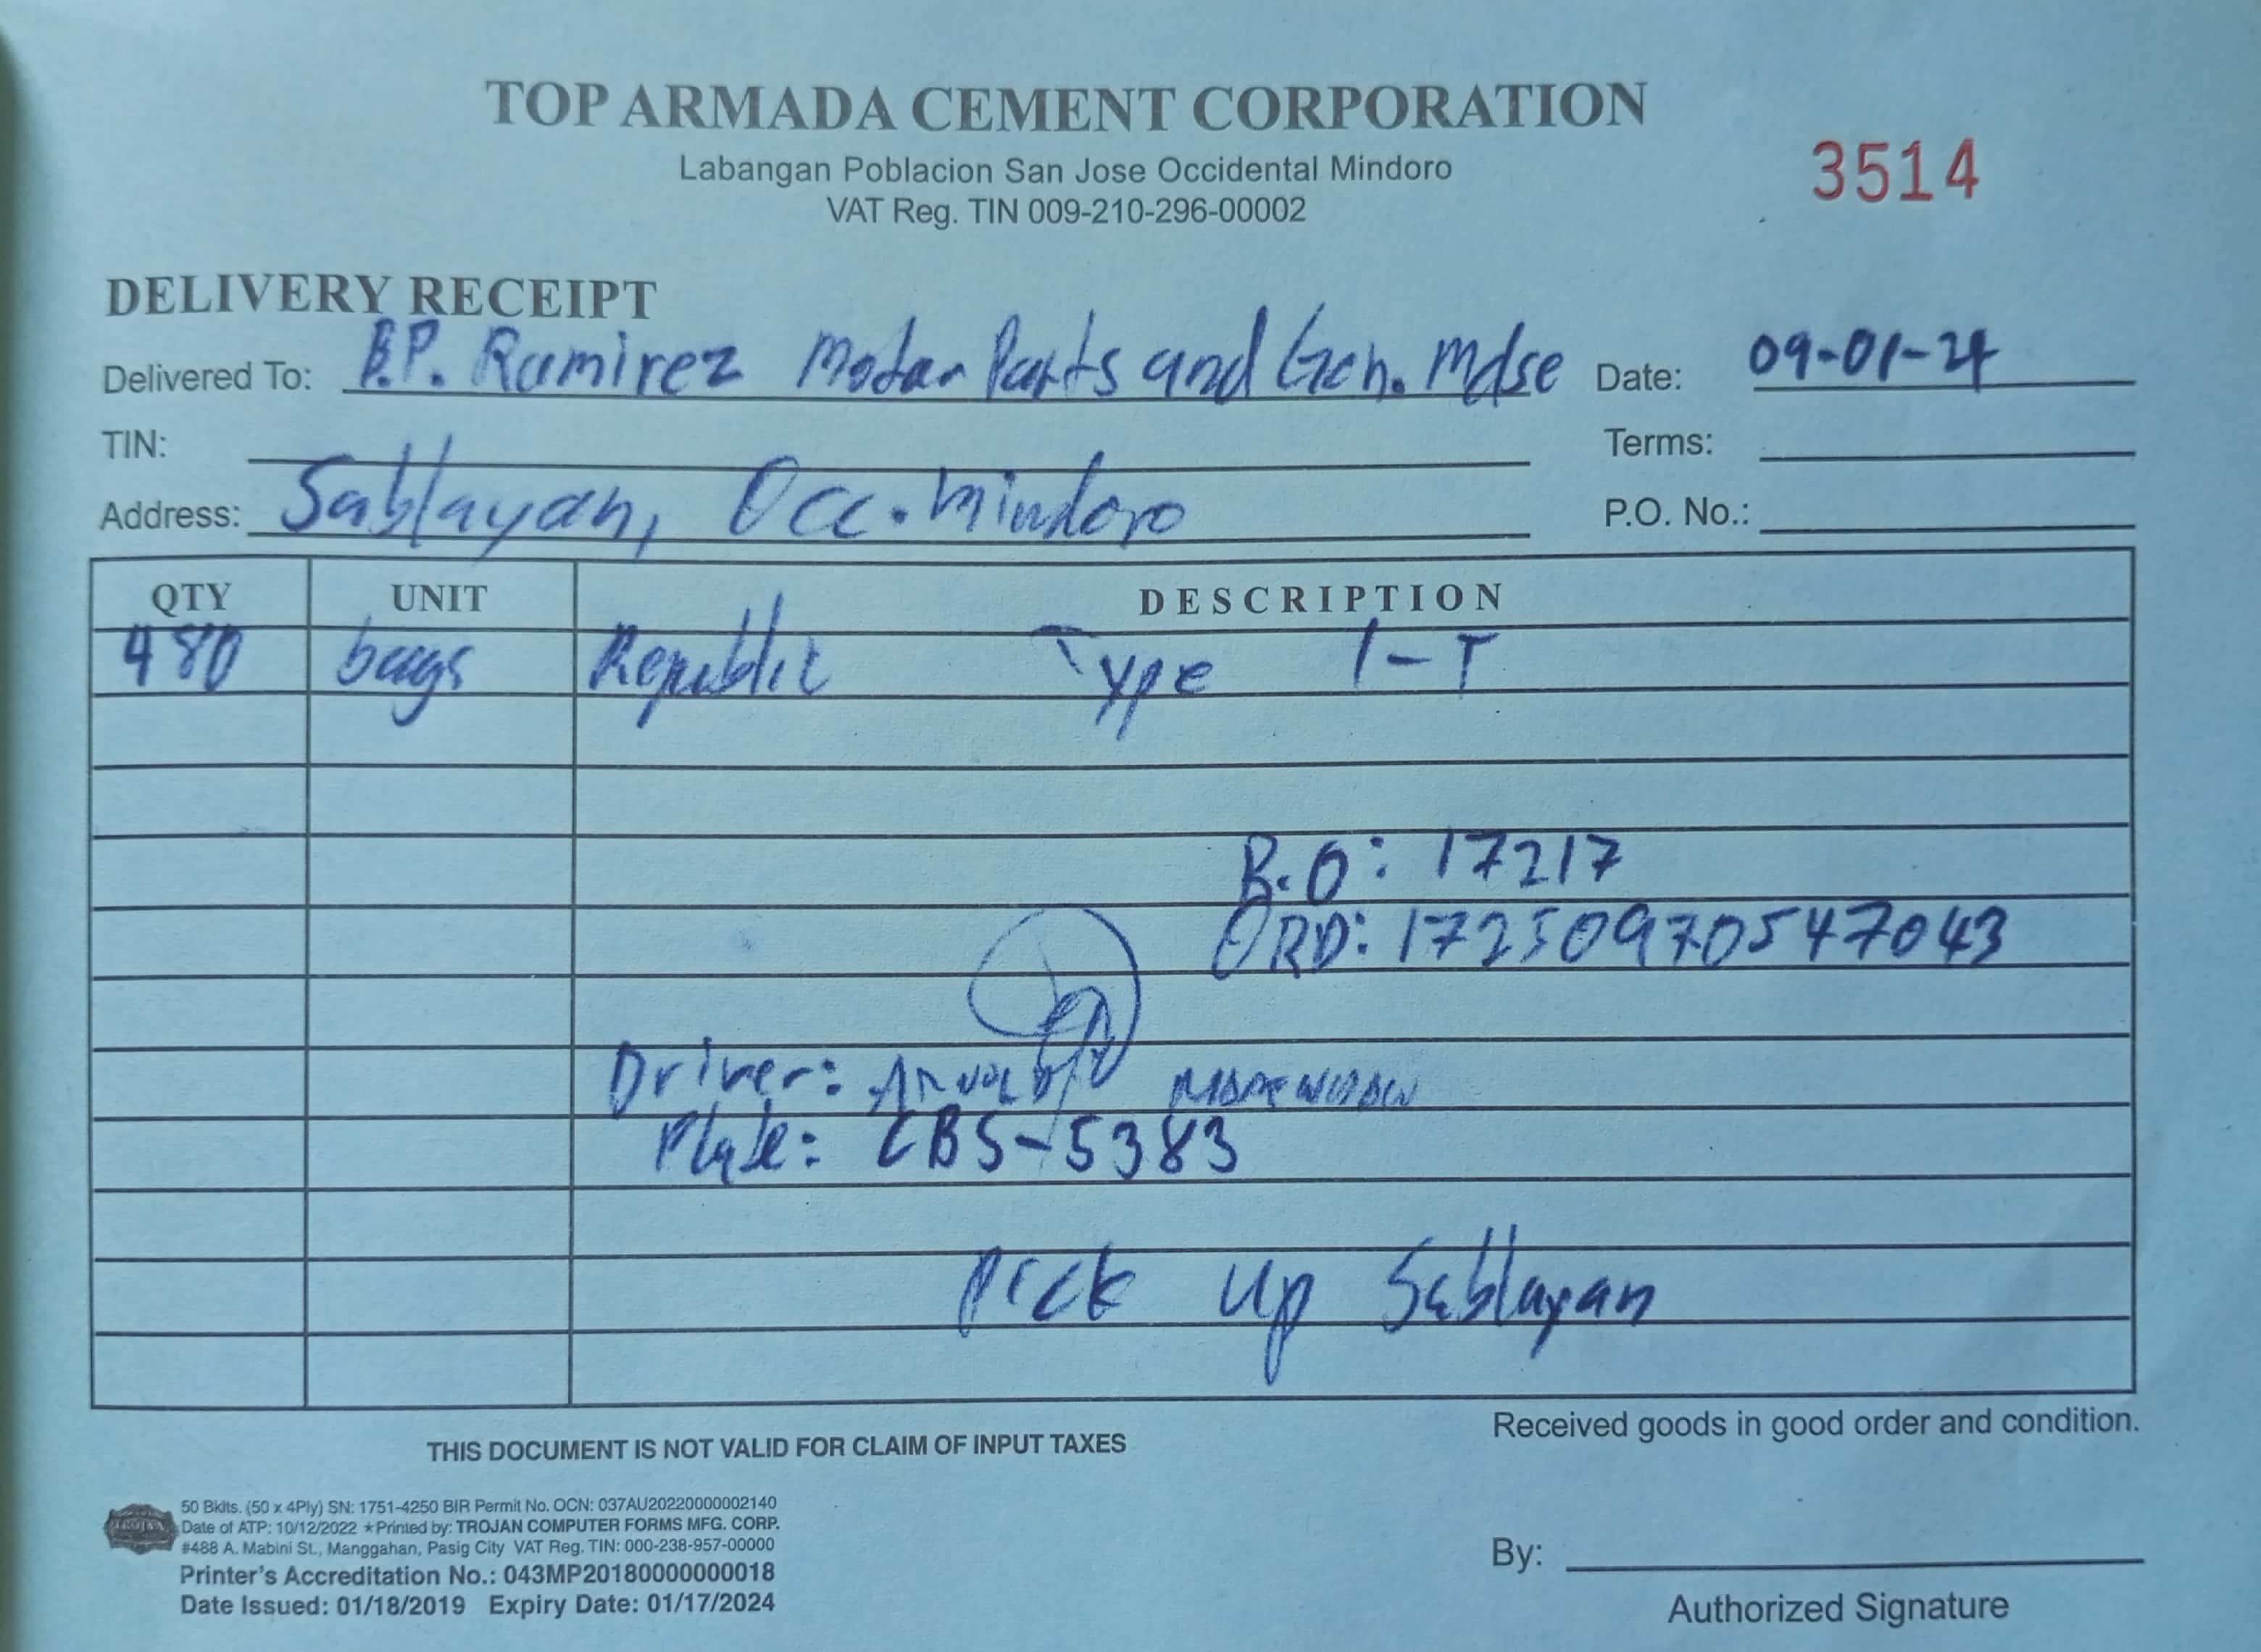 TOP ARMADA CEMENT CORPORATION
Labangan Poblacion San Jose Occidental Mindoro
VAT Reg. TIN 009-210-296-00002
3514
DELIVERY RECEIPT
Delivered To: B.P. Ramirez Motor Parts and Gen. Mdse Date: 09-01-24
TIN: Terms:
Address: Sablayan, Occ. Mindoro P.O. No.:
QTY UNIT DESCRIPTION
480 bags Republic Type 1-T
B.O: 17217
ORD: 17250970547043
Driver:
Plate: CBS-5383
Pick up Sablayan
THIS DOCUMENT IS NOT VALID FOR CLAIM OF INPUT TAXES
Received goods in good order and condition.
TROJAN
50 Bklts. (50 x 4Ply) SN: 1751-4250 BIR Permit No. OCN: 037AU20220000002140
Date of ATP: 10/12/2022 ★Printed by: TROJAN COMPUTER FORMS MFG. CORP.
#488 A. Mabini St., Manggahan, Pasig City VAT Reg. TIN: 000-238-957-00000
Printer's Accreditation No.: 043MP20180000000018
Date Issued: 01/18/2019 Expiry Date: 01/17/2024
By:
Authorized Signature